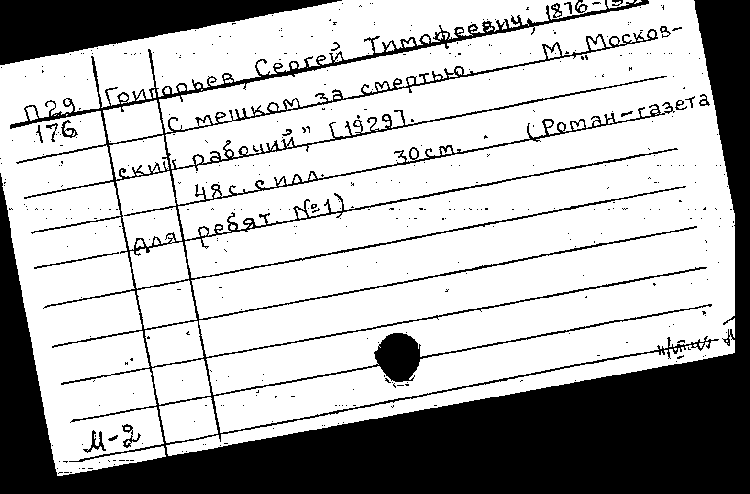 П29
176
Григорьев, Сергей Тимофеевич, 1876-
С мешком за смертью. М., „Москов-
ский рабочий”, [1929].
48с. с илл. 30cm. (Роман-газета
для ребят №1)
М-2